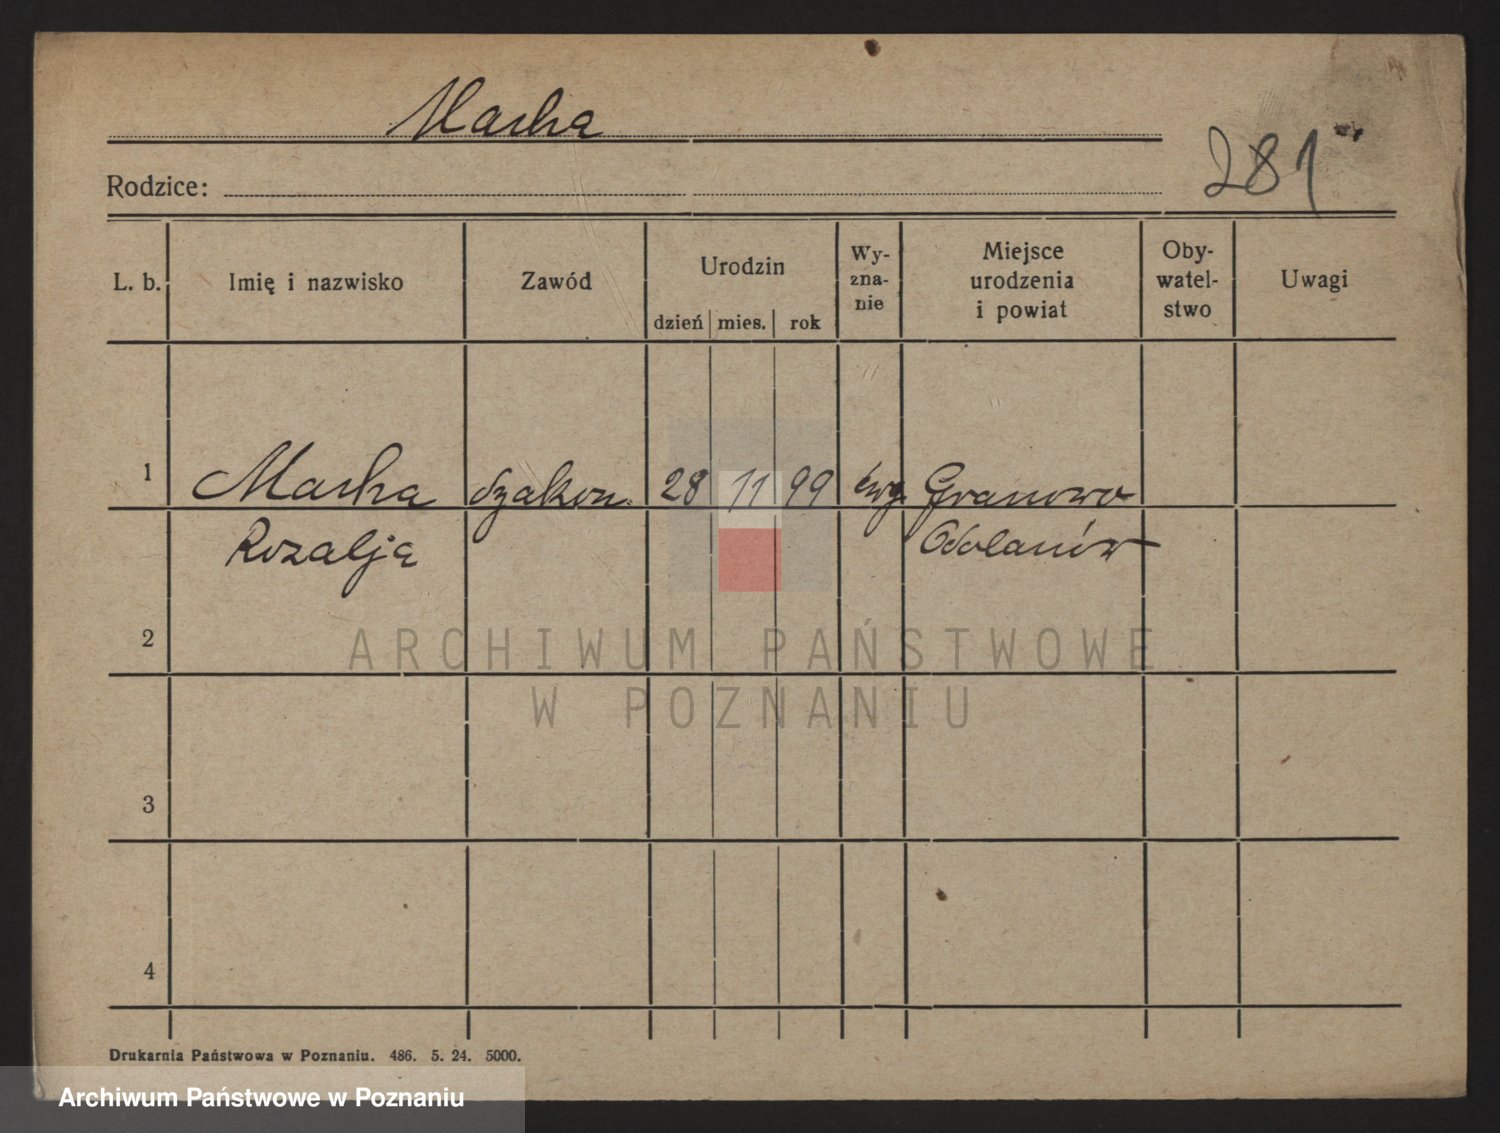 Macha
281
Rodzice:
L. b. Imię i nazwisko Zawód Urodzin dzień mies. rok Wy-zna-nie Miejsce urodzenia i powiat Oby-watel-stwo Uwagi
1 Macha 28 11 99 ewg. Granowo
Rozalja Odolanów
2
3
4
Drukarnia Państwowa w Poznaniu. 486. 5. 24. 5000.
ARCHIWUM PAŃSTWOWE
W POZNANIU
Archiwum Państwowe w Poznaniu